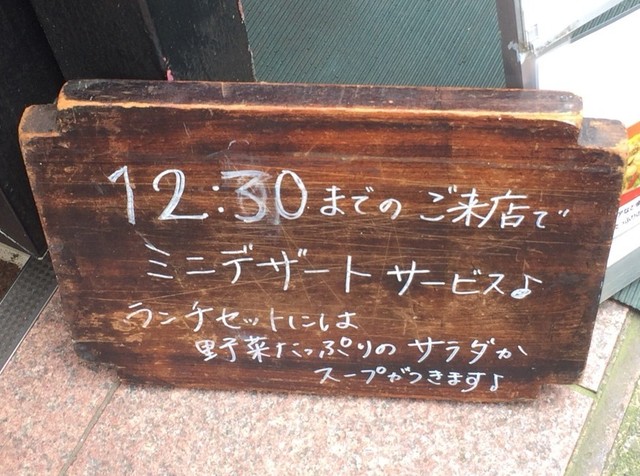 12:30 までの ご来店で
ミニデザート サービス♪
ランチセットには
野菜たっぷりの サラダか
スープがつきます♪